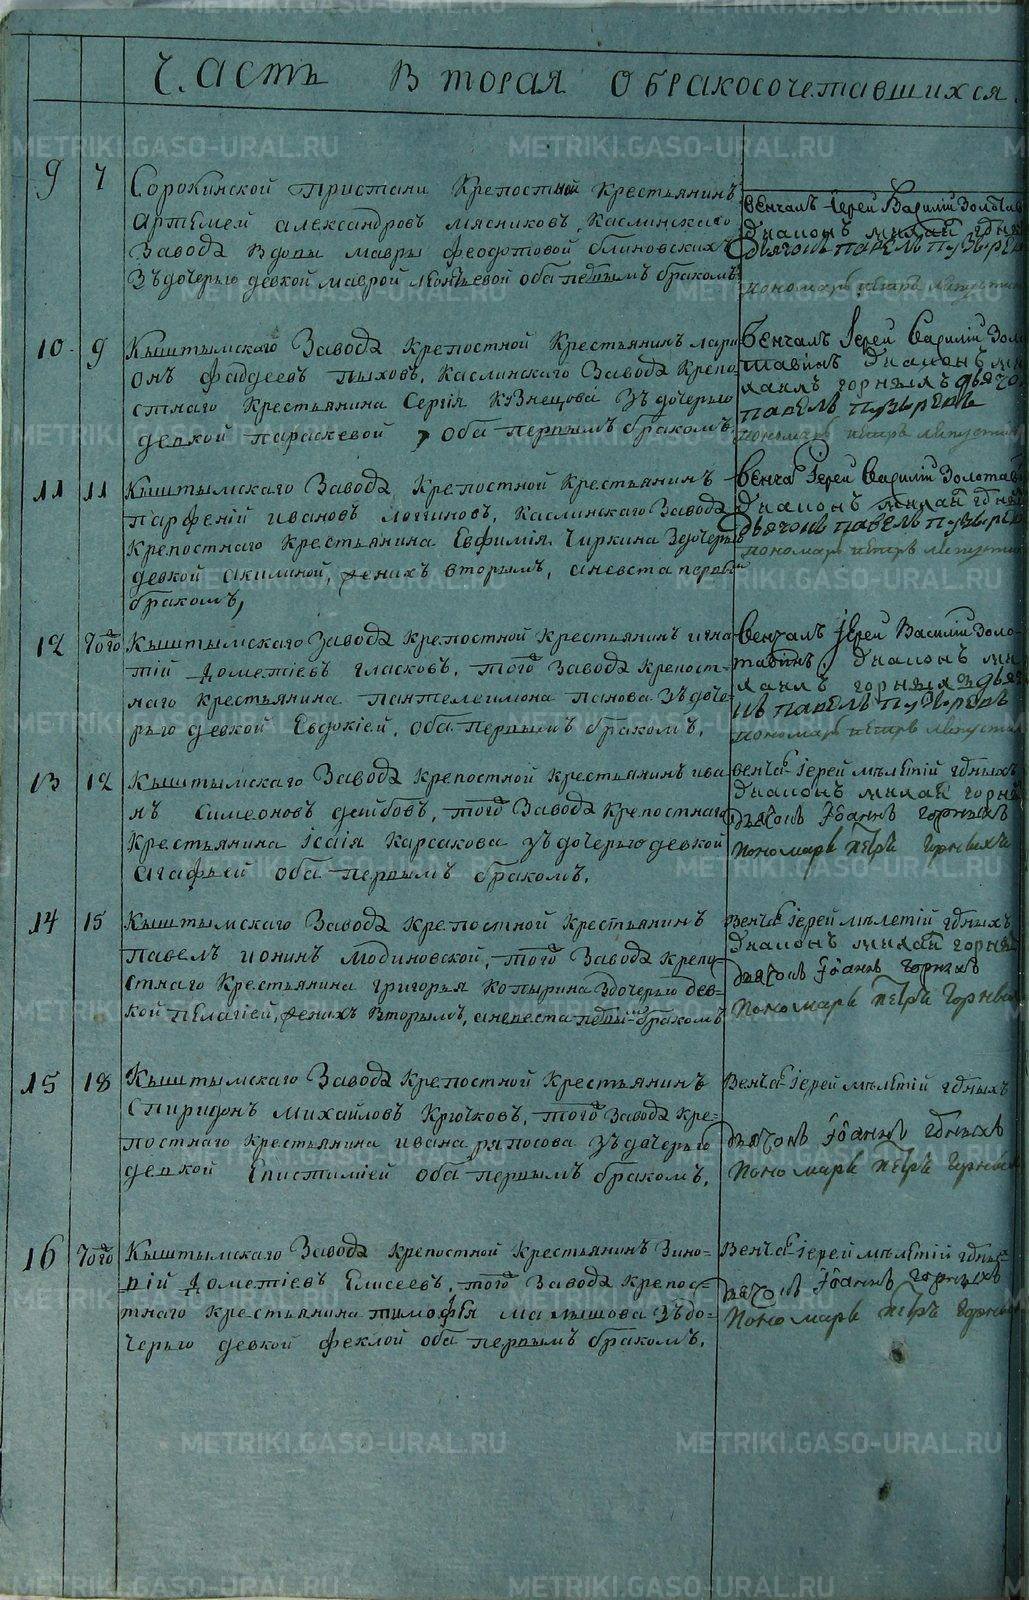 Часть Вторая О бракосочетавшихся.
9 7 Сорокинской пристани Крепостной Крестьянинъ
Артемей Александровъ Мясниковъ, Каслинскаго
Завода вдовы Мавры Феодотовой Блиновскихъ
Зъ дочерью девкой Маврой Леонтьевой оба первымъ бракомъ
Венчалъ Іерей Василій Золотав
Диаконъ Михаил
Дьячокъ Павелъ Пузырев
пономарь петръ
10 9 Кыштымскаго Завода Крепостной Крестьянинъ Лари
онъ Фаддеевъ Пыховъ, Каслинскаго Завода Крепо
стнаго Крестьянина Сергія Кузнецова Зъ дочерью
девкой параскевой, Оба первымъ бракомъ.
Венчалъ Іерей Василій Золо
тавинъ Диаконъ Ми
хаилъ горныхъ дьячо
павелъ пузыревъ
пономарь петръ
11 11 Кыштымскаго Завода Крепостной Крестьянинъ
Парфеній Ивановъ Логгиновъ, Каслинскаго Завода
Крепостнаго Крестьянина Евфимія Чиркина Здочерью
девкой акилиной, женихъ вторымъ, а невеста первы
бракомъ,
Венча Іерей Василій Золотав
Диаконъ
Дьячокъ павелъ пузырев
пономарь петръ
12 Того Кыштымскаго Завода Крепостной Крестьянинъ Игна
тій Дометіевъ Гласковъ, того Завода Крепост-
наго Крестьянина Пантелеимона Панова Зъ доче-
рью девкой Евдокіей, оба первымъ бракомъ.
Венчалъ Іерей Василій Золо-
тавинъ, Диаконъ Ми
хаилъ горныхъ дьяч
павелъ пузыревъ
пономарь петръ
13 12 Кыштымскаго Завода Крепостной Крестьянинъ Ива
нъ Симеоновъ, того Завода Крепостнаго
Крестьянина Ісаія Карсакова зъ дочерью девкой
Агафьей оба первымъ бракомъ.
венча Іерей Мѣлетій горныхъ
Диаконъ Михаил горны
дьячокъ Іоаннъ горныхъ
пономарь петръ горныхъ
14 15 Кыштымскаго Завода Крепостной Крестьянинъ
Павелъ Ионинъ Модиновской, того Завода Крепо
стнаго Крестьянина Григорья Копырина Здочерью дев-
кой Пелагіей, женихъ вторымъ, а невеста первымъ бракомъ
Венча Іерей Мѣлетій горныхъ
Диаконъ Михаил горны
дьячокъ Іоаннъ горныхъ
Пономарь петръ горных
15 18 Кыштымскаго Завода Крепостной Крестьянинъ
Спиридонъ Михайловъ Крючковъ, того Завода Кре-
постнаго Крестьянина Ивана Ряпосова Зъ дочерью
девкой Епистиміей оба первымъ бракомъ.
Венча Іерей Мѣлетій горныхъ
дьячокъ Іоаннъ горныхъ
Пономарь петръ горных
16 Того Кыштымскаго Завода Крепостной Крестьянинъ Зино-
вій Дометіевъ Елисеевъ, того Завода Крепос-
тнаго Крестьянина Тимофѣя Малышова Зъ до-
черью девкой Феклой оба первымъ бракомъ.
Венча Іерей Мѣлетій горных
дьячокъ Іоаннъ горныхъ
Пономарь петръ горных
METRIKI.GASO-URAL.RU